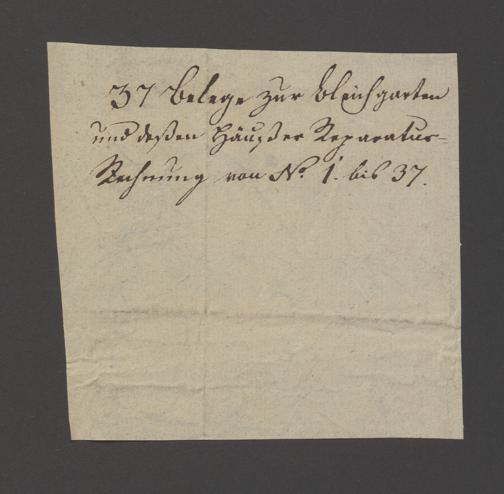 37 Belege zur Bleichgarten
und deßen Häußer Reparatur-
Rechnung von No. 1. bis 37.